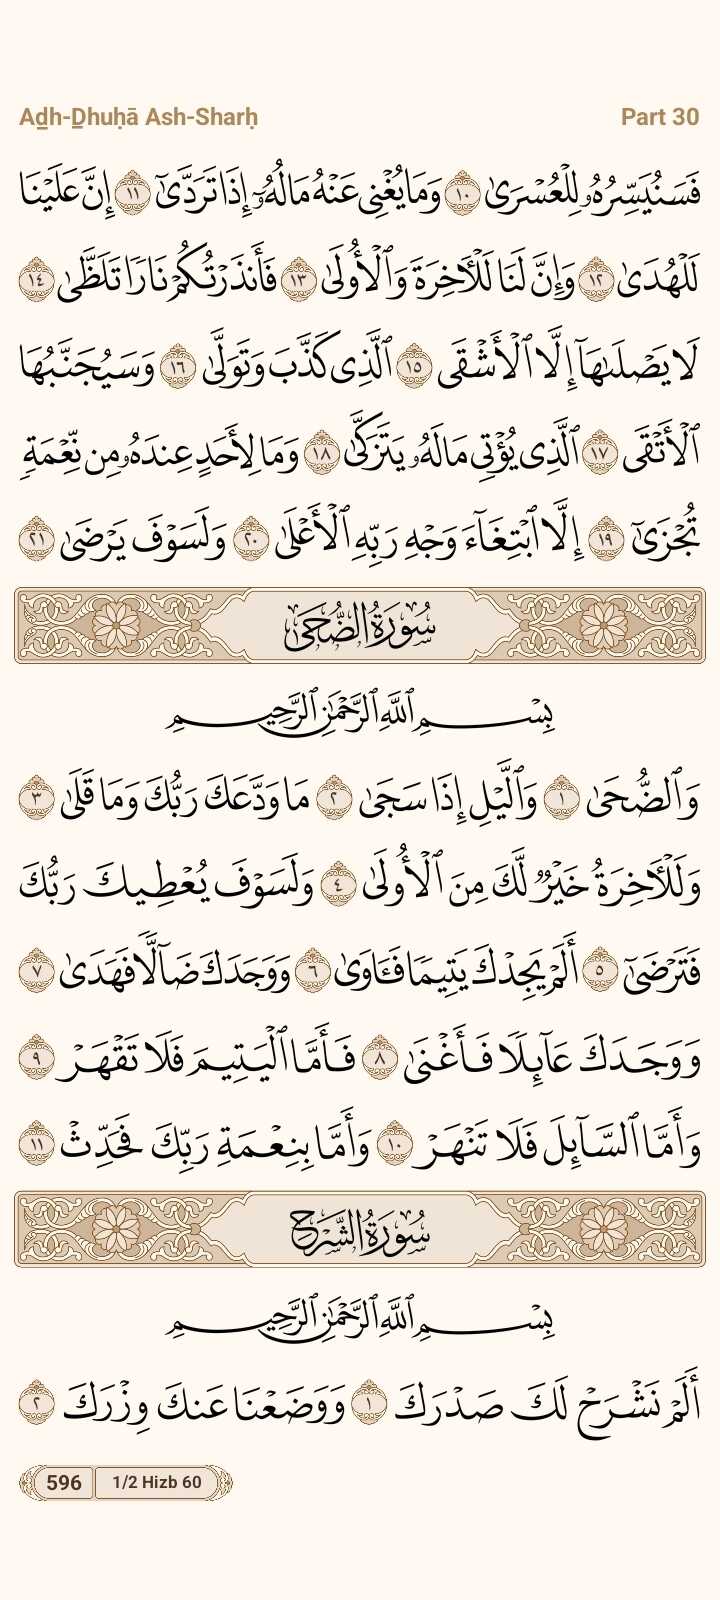 Aḏh-Ḏhuḥā Ash-Sharḥ
Part 30
فَسَنُيَسِّرُهُۥ لِلْعُسْرَىٰ ١٠ وَمَا يُغْنِى عَنْهُ مَالُهُۥٓ إِذَا تَرَدَّىٰٓ ١١ إِنَّ عَلَيْنَا
لَلْهُدَىٰ ١٢ وَإِنَّ لَنَا لَلْـَٔاخِرَةَ وَٱلْأُولَىٰ ١٣ فَأَنذَرْتُكُمْ نَارًا تَلَظَّىٰ ١٤
لَا يَصْلَىٰهَآ إِلَّا ٱلْأَشْقَى ١٥ ٱلَّذِى كَذَّبَ وَتَوَلَّىٰ ١٦ وَسَيُجَنَّبُهَا
ٱلْأَتْقَى ١٧ ٱلَّذِى يُؤْتِى مَالَهُۥ يَتَزَكَّىٰ ١٨ وَمَا لِأَحَدٍ عِندَهُۥ مِن نِّعْمَةٍ
تُجْزَىٰٓ ١٩ إِلَّا ٱبْتِغَآءَ وَجْهِ رَبِّهِ ٱلْأَعْلَىٰ ٢٠ وَلَسَوْفَ يَرْضَىٰ ٢١
سُورَةُ الضُّحَىٰ
بِسْمِ ٱللَّهِ ٱلرَّحْمَٰنِ ٱلرَّحِيمِ
وَٱلضُّحَىٰ ١ وَٱلَّيْلِ إِذَا سَجَىٰ ٢ مَا وَدَّعَكَ رَبُّكَ وَمَا قَلَىٰ ٣
وَلَلْـَٔاخِرَةُ خَيْرٌ لَّكَ مِنَ ٱلْأُولَىٰ ٤ وَلَسَوْفَ يُعْطِيكَ رَبُّكَ
فَتَرْضَىٰٓ ٥ أَلَمْ يَجِدْكَ يَتِيمًا فَـَٔاوَىٰ ٦ وَوَجَدَكَ ضَآلًّا فَهَدَىٰ ٧
وَوَجَدَكَ عَآئِلًا فَأَغْنَىٰ ٨ فَأَمَّا ٱلْيَتِيمَ فَلَا تَقْهَرْ ٩
وَأَمَّا ٱلسَّآئِلَ فَلَا تَنْهَرْ ١٠ وَأَمَّا بِنِعْمَةِ رَبِّكَ فَحَدِّثْ ١١
سُورَةُ الشَّرْحِ
بِسْمِ ٱللَّهِ ٱلرَّحْمَٰنِ ٱلرَّحِيمِ
أَلَمْ نَشْرَحْ لَكَ صَدْرَكَ ١ وَوَضَعْنَا عَنكَ وِزْرَكَ ٢
596
1/2 Hizb 60